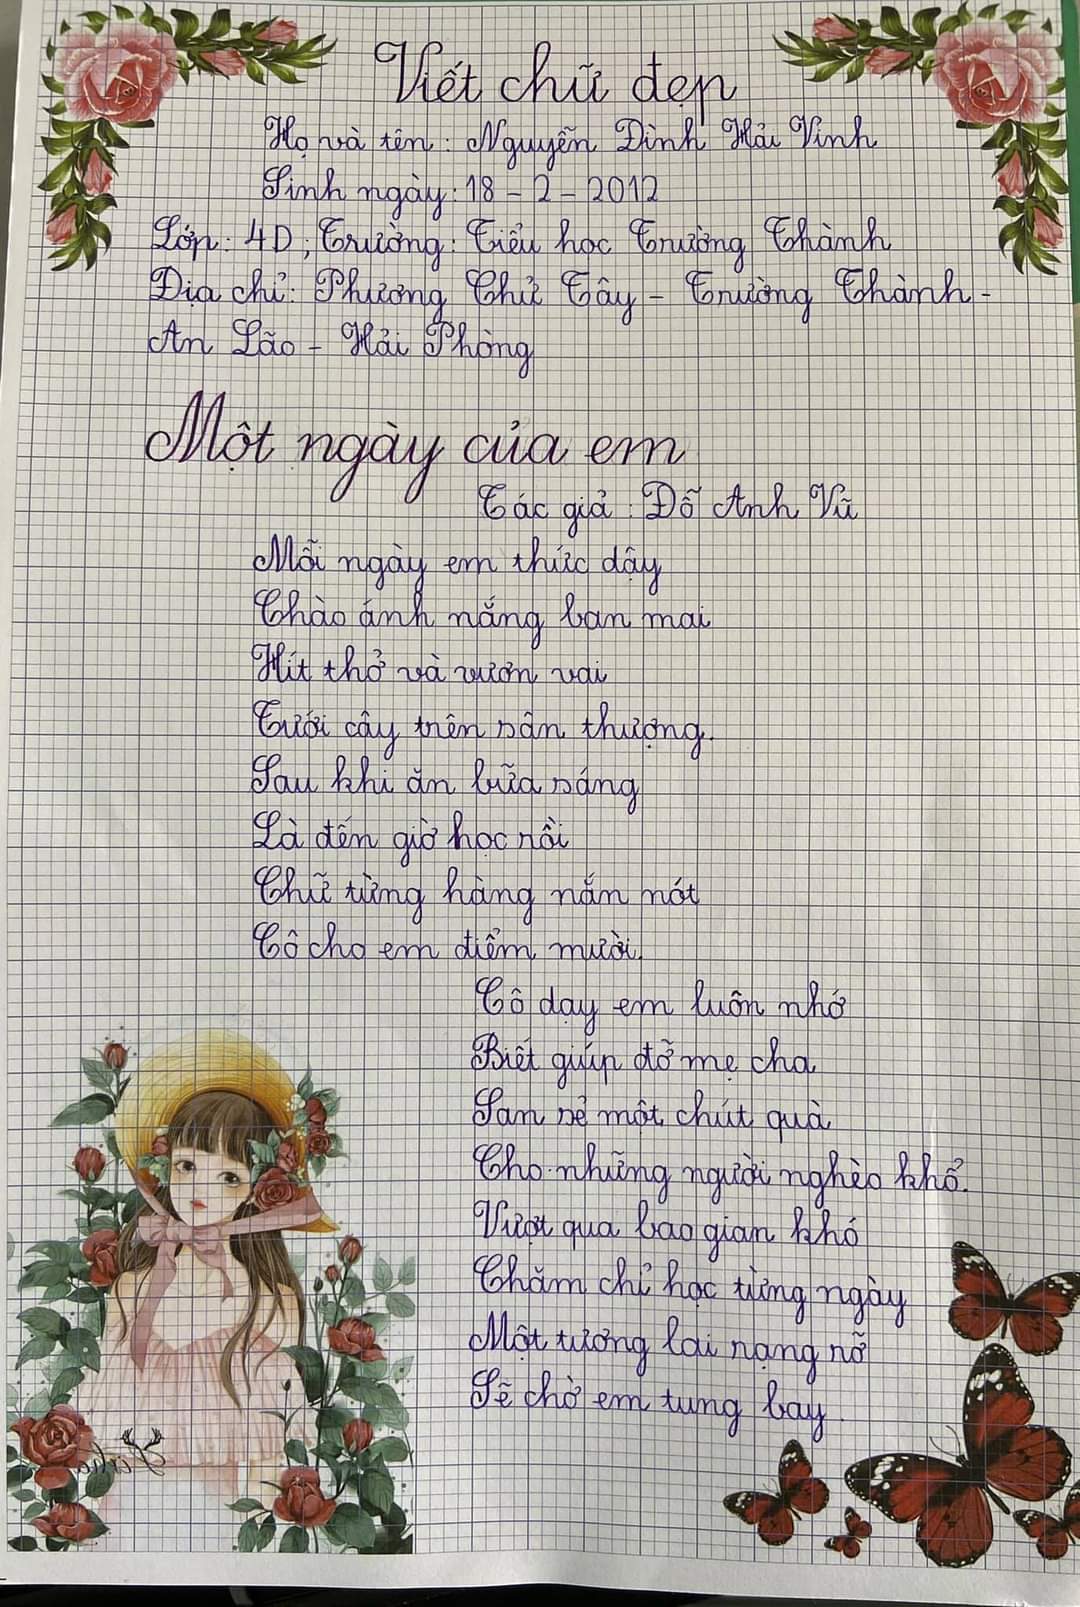 Viết chữ đẹp
Họ và tên: Nguyễn Đình Hải Vinh
Sinh ngày: 18 - 2 - 2012
Lớp: 4D; Trường: Tiểu học Trường Thành
Địa chỉ: Phương Chử Tây - Trường Thành -
An Lão - Hải Phòng
Một ngày của em
Tác giả: Đỗ Anh Vũ
Mỗi ngày em thức dậy
Chào ánh nắng ban mai
Hít thở và vươn vai
Tưới cây trên sân thượng.
Sau khi ăn bữa sáng
Là đến giờ học rồi
Chữ từng hàng nắn nót
Cô cho em điểm mười.
Cô dạy em luôn nhớ
Biết giúp đỡ mẹ cha
San sẻ một chút quà
Cho những người nghèo khổ.
Vượt qua bao gian khó
Chăm chỉ học từng ngày
Một tương lai rạng rỡ
Sẽ chờ em tung bay.